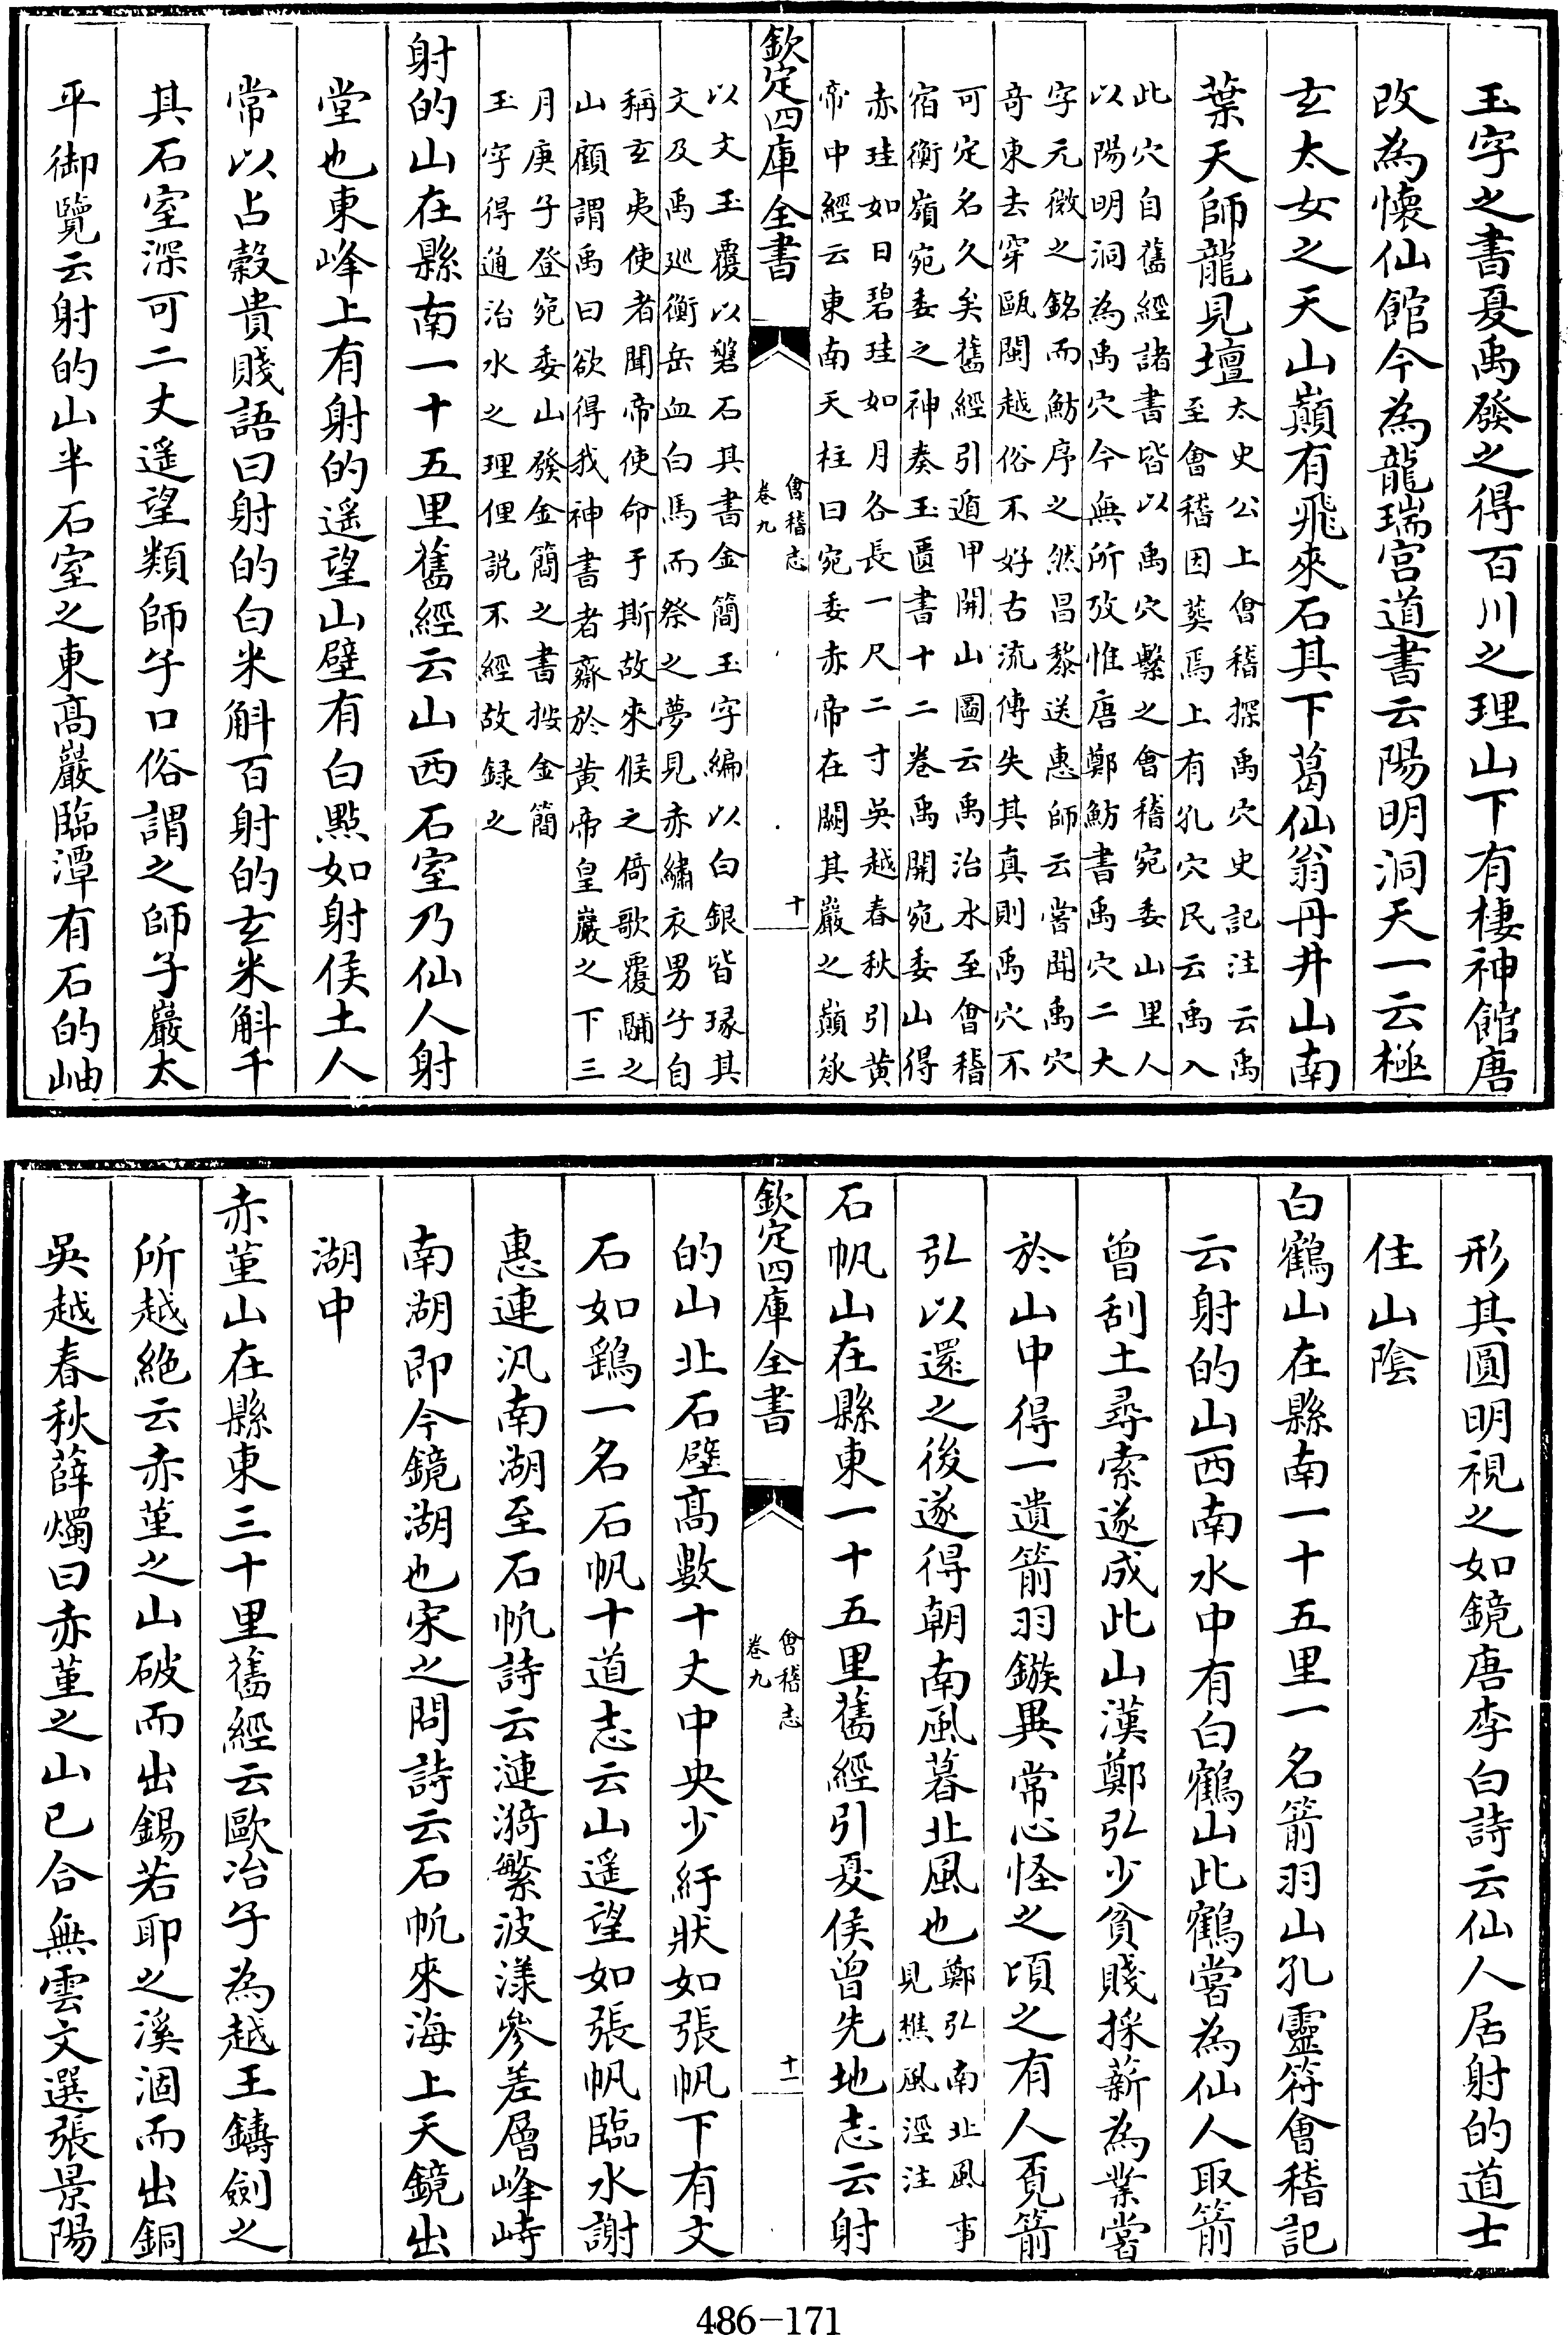 玉字之書夏禹發之得百川之理山下有棲神館唐
改為懷仙館今為龍瑞宫道書云陽明洞天一云極
玄太女之天山巔有飛來石其下葛仙翁丹井山南
葉天師龍見壇太史公上㑹稽探禹穴史記注云禹
至會稽因葬焉上有孔穴民云禹入
此穴自舊經諸書皆以禹穴繫之㑹稽宛委山里人
以陽明洞為禹穴今無所攷惟唐鄭魴書禹穴二大
字元微之銘而魴序之然昌黎送惠師云嘗聞禹穴
竒東去穿甌閩越俗不好古流傳失其真則禹穴不
可定名久矣舊經引遁甲開山圖云禹治水至㑹稽
宿衡嶺宛委之神奏玉匱書十二卷禹開宛委山得
赤珪如日碧珪如月各長一尺二寸吳越春秋引黄
帝中經云東南天柱曰宛委赤帝在闕其巖之巔承
欽定四庫全書
㑹稽志
卷九
十
以文玉覆以磐石其書金簡玉字編以白銀皆瑑其
文及禹廵衡岳血白馬而祭之夢見赤繡衣男子自
稱玄夷使者聞帝使命于斯故來候之倚歌覆鬴之
山顧謂禹曰欲得我神書者齋於黄帝皇巖之下三
月庚子登宛委山發金簡之書按金簡
玉字得通治水之理俚説不經故録之
射的山在縣南一十五里舊經云山西石室乃仙人射
堂也東峰上有射的遥望山壁有白點如射侯土人
常以占穀貴賤語曰射的白米斛百射的玄米斛千
其石室深可二丈遥望類師子口俗謂之師子巖太
平御覽云射的山半石室之東髙巖臨潭有石的岫
形其圓明視之如鏡唐李白詩云仙人居射的道士
住山隂
白鶴山在縣南一十五里一名箭羽山孔靈符會稽記
云射的山西南水中有白鶴山此鶴嘗為仙人取箭
曾刮土尋索遂成此山漢鄭弘少貧賤採薪為業嘗
於山中得一遺箭羽鏃異常心怪之頃之有人覓箭
弘以還之後遂得朝南風暮北風也鄭弘南北風事
見樵風涇注
石帆山在縣東一十五里舊經引夏侯曾先地志云射
欽定四庫全書
㑹稽志
卷九
十一
的山北石壁髙數十丈中央少紆狀如張帆下有文
石如鷂一名石帆十道志云山遥望如張帆臨水謝
惠連汎南湖至石帆詩云漣漪繁波漾參差層峰峙
南湖即今鏡湖也宋之問詩云石帆來海上天鏡出
湖中
赤堇山在縣東三十里舊經云歐冶子為越王鑄劍之
所越絶云赤堇之山破而出錫若耶之溪涸而出銅
吳越春秋薛燭曰赤堇之山已合無雲文選張景陽
486-171